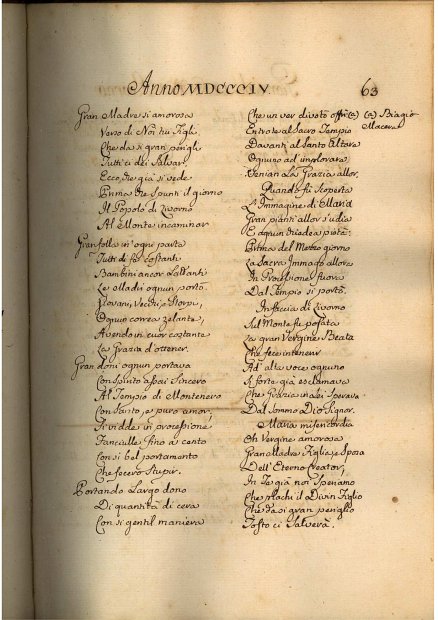 Anno MDCCCIV.
63
Gran Madre si amorosa
Verso di Noi tu Figli
Che da si gran perigli
Tutti ci dei Salvar.
Ecco, che già si vede
Prima che Spunti il giorno
Il Popolo di Livorno
Al Monte incaminar
Gran folla in ogni parte
Tutti di fio costanti
Bambini ancor Lattanti
Le Madri ogniun portò.
Giovani, Vecchi, e Storpi,
Ognun correa zelante,
Avendo in cuor costante
La Grazia d'ottener.
Gran doni ognun portava
Con Spirito assai Sincero
Al Tempio di Montenero
Con Santo, e puro amor;
Si vidde in processione
Fanciulle fino a cento
Con si bel portamento
Che fecero Stupir.
Portando Largo dono
Di quantità di cera
Con si gentil maniera
Che un ver divoto offrì (a)
Entrate al Sacro Tempio
Davanti al Santo Altare
Ognuno ad implorare
Venian La Grazia allor.
Quando fù Scoperta
L'Immagine di Maria
Gran pianti allor s'udia
E ognun chiedea pietà:
Prima del Mezzo giorno
La Sacra Immago allora
In Processione fuora
Dal Tempio si portò.
In faccia di Livorno
Sul Monte fu posata
La gran Vergine Beata
Che fece intenerir
Ad' alta voce ognuno
A forte già esclamava
Che Grazia in Lei Sperava
Dal Sommo Dio Signor.
Maria misericordia
Oh Vergine amorosa
Gran Madre Figlia, e Sposa
Dell' Eterno Creator,
In Te già noi Speriamo
Che plachi il Divin Figlio
Che da si gran periglio
Tosto ci Salverà.
(a) Biagio
Macera